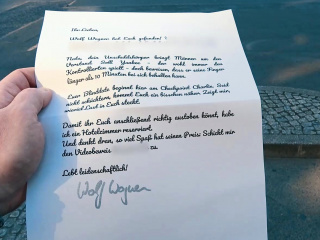 Ihr Lieben,
Wolf Wagner hat Euch gefunden!
Na la, dein Unschuldskörper bringt Männer um den
Verstand. Soll Yankee - der wohl immer das
Kontrollierten spielt - doch beweisen, dass er seine Finger
länger als 10 Minuten bei sich behalten kann.
Eure Blockade beginnt hier am Checkpoint Charlie. Seid
nicht schüchtern, kommt Euch ein bisschen näher. Zeigt mir
wieviel Lust in Euch steckt.
Damit ihr Euch anschließend richtig austoben könnt, habe
ich ein Hotelzimmer reserviert.
Und denkt dran, so viel Spaß hat seinen Preis: Schickt mir
den Videobeweis zu.
Lebt leidenschaftlich!
Wolf Wagner